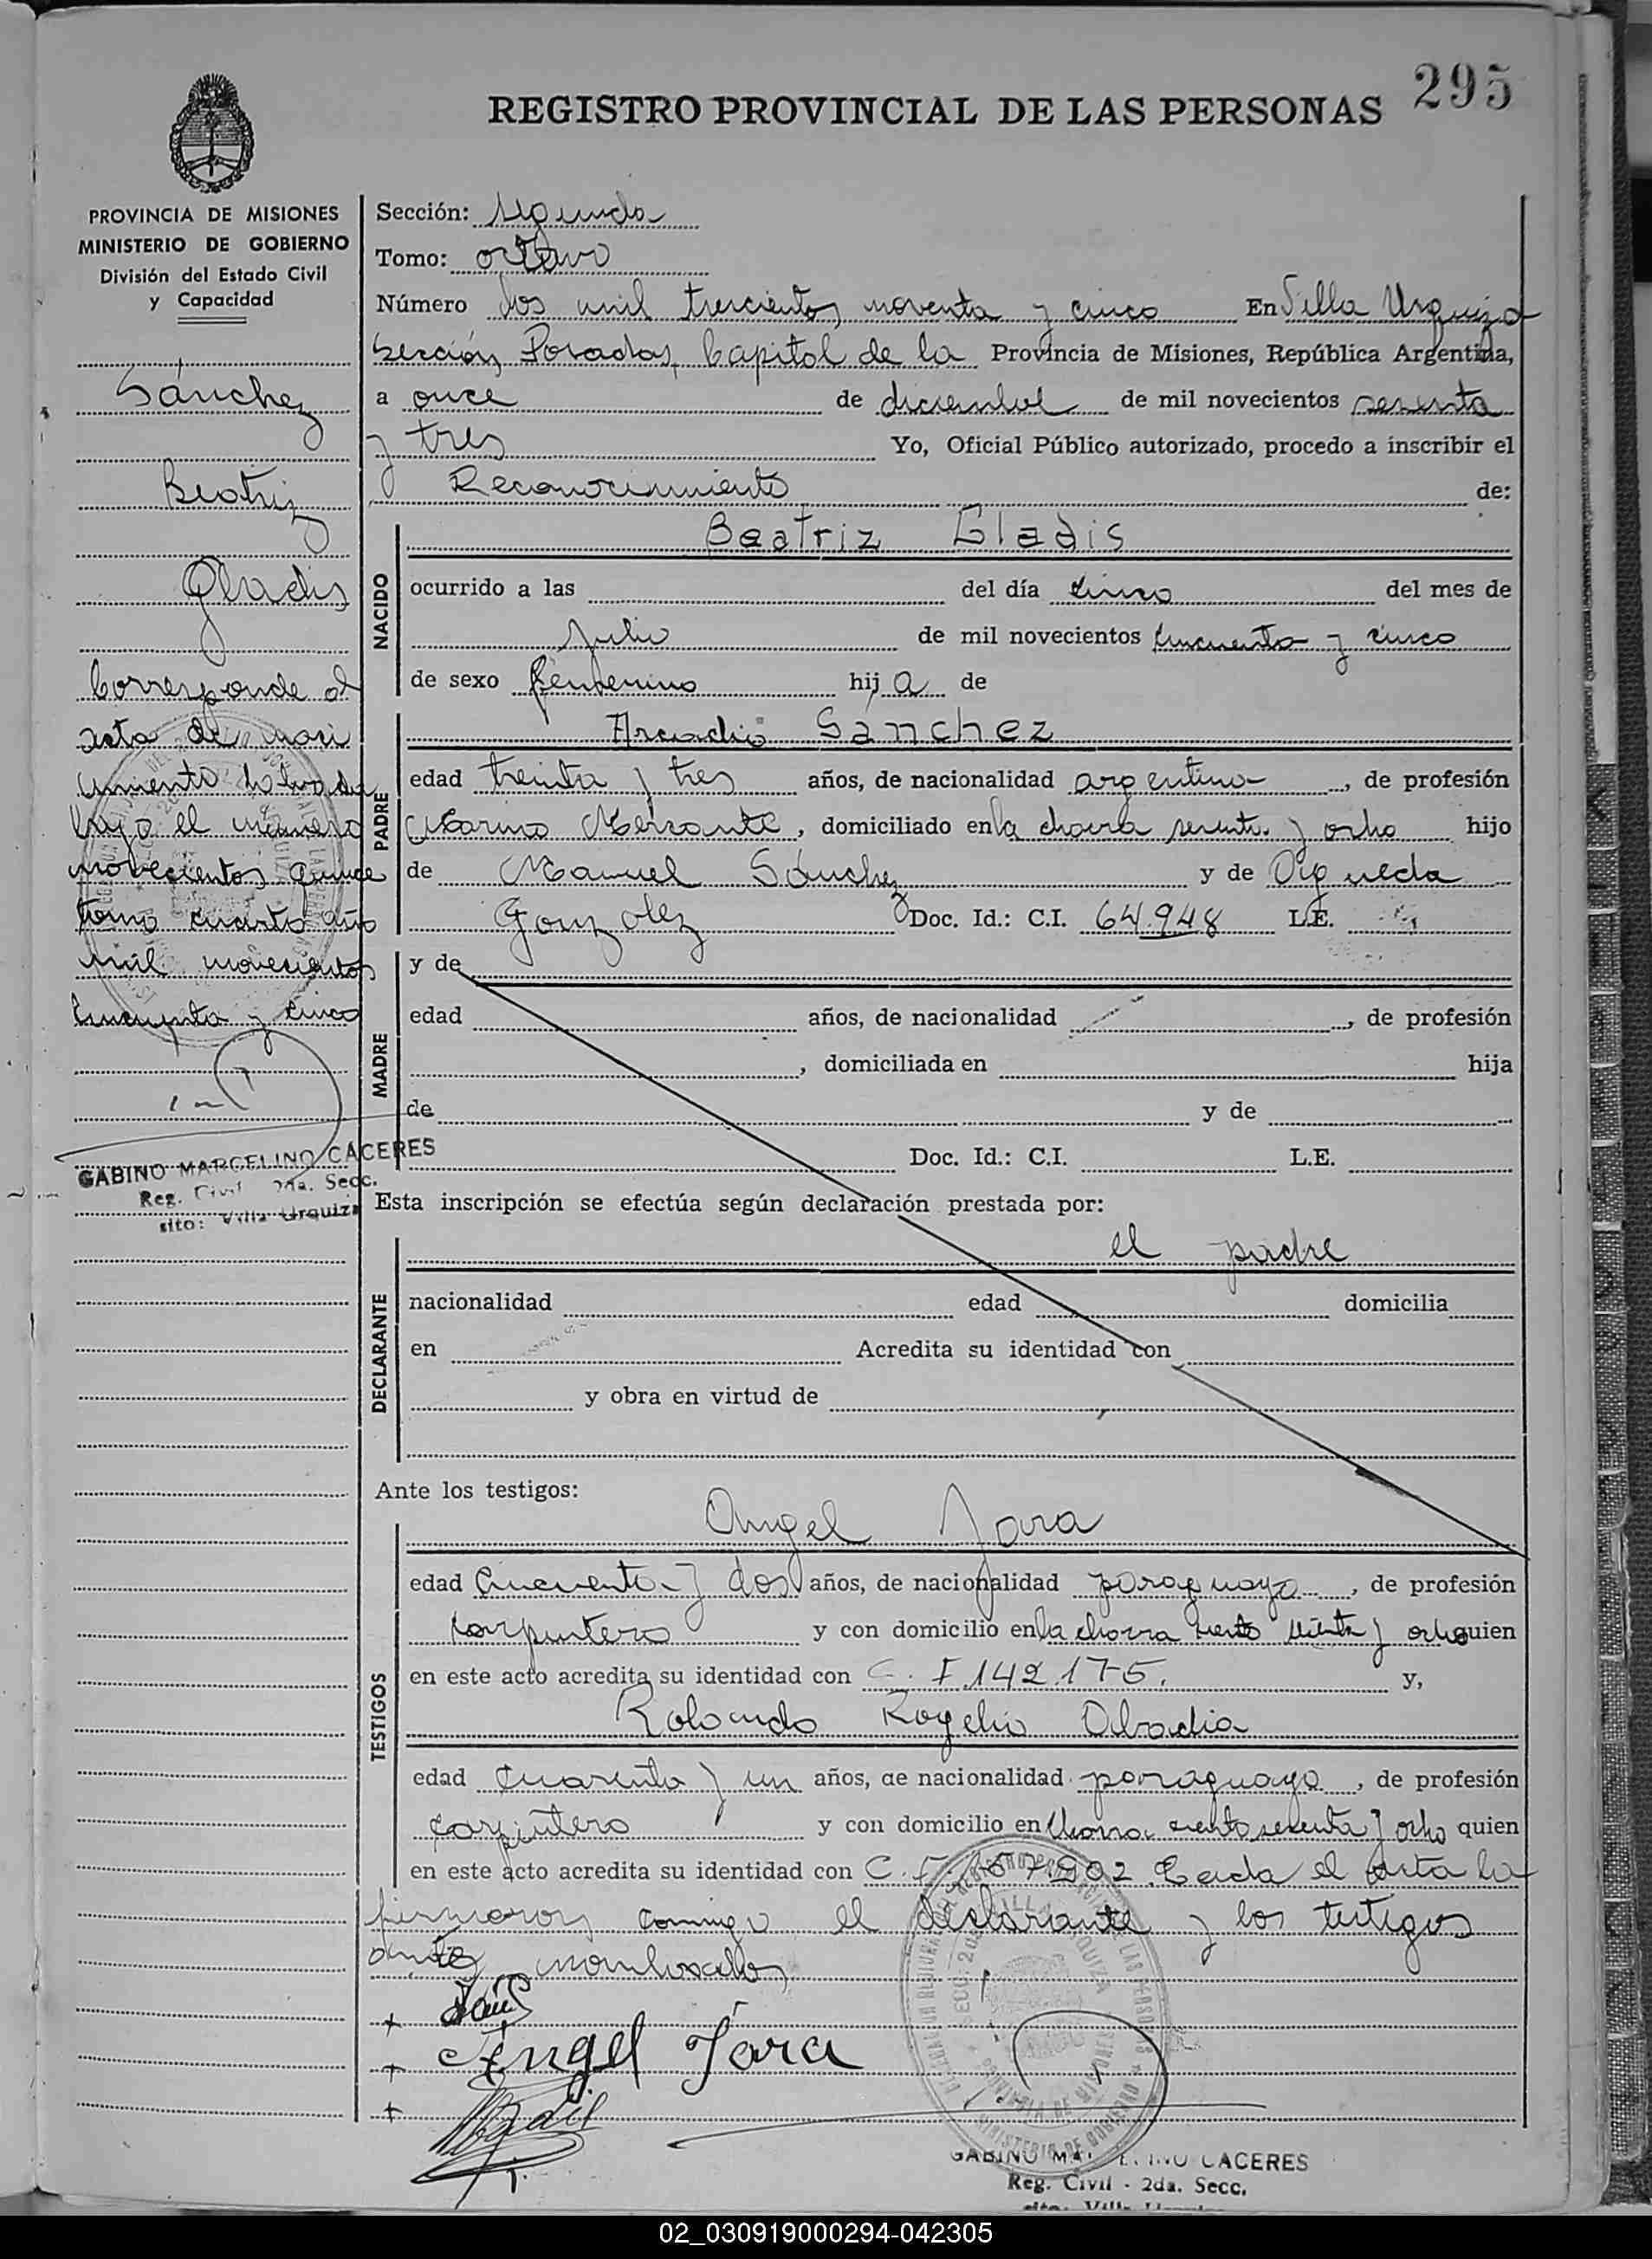 295
REGISTRO PROVINCIAL DE LAS PERSONAS
PROVINCIA DE MISIONES
MINISTERIO DE GOBIERNO
División del Estado Civil
y Capacidad
Sánchez
Beatriz
Gladis
Corresponde al
acta de naci
miento labrada
bajo el número
novecientos quince
tomo cuarto año
mil novecientos
cincuenta y cinco
GABINO MARCELINO CACERES
Reg. Civil 2da. Secc.
sito: Villa Urquiza
Sección: segunda
Tomo: octavo
Número dos mil trescientos noventa y cinco En Villa Urquiza
Sección, Posadas, Capital de la Provincia de Misiones, República Argentina,
a once de diciembre de mil novecientos sesenta
y tres Yo, Oficial Público autorizado, procedo a inscribir el
Reconocimiento de:
NACIDO
Beatriz Gladis
ocurrido a las del día cinco del mes de
Julio de mil novecientos cincuenta y cinco
de sexo femenino hija de
PADRE
Arcadio Sánchez
edad treinta y tres años, de nacionalidad argentina, de profesión
Marino Mercante, domiciliado en la chacra sesenta y ocho hijo
de Manuel Sánchez y de
González Doc. Id.: C.I. 64.948 L.E.
MADRE
y de
edad años, de nacionalidad , de profesión
, domiciliada en hija
de y de
Doc. Id.: C.I. L.E.
Esta inscripción se efectúa según declaración prestada por:
DECLARANTE
el padre
nacionalidad edad domicilia
en Acredita su identidad con
y obra en virtud de
Ante los testigos:
TESTIGOS
Angel Jara
edad cincuenta y dos años, de nacionalidad paraguaya, de profesión
carpintero y con domicilio en la chacra ciento y ocho quien
en este acto acredita su identidad con C. I 142.175. y,
Rolando Rogelio Abadia
edad cuarenta y un años, de nacionalidad paraguaya, de profesión
carpintero y con domicilio en chacra ciento sesenta y ocho quien
en este acto acredita su identidad con C. I. 157.902. Leida el acta la
firmaron conmigo el declarante y los testigos
antes nombrados
Angel Jara
GABINO MARCELINO CACERES
Reg. Civil - 2da. Secc.
02_030919000294-042305